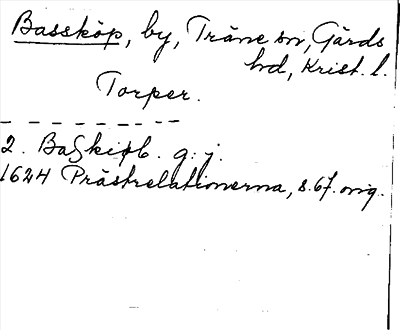 Bassköp, by, Träne sn, Gärds
hd, Krist. l.
Torper.
2. Baskiøb. g. j.
1624 Prästrelationerna, s. 67. orig.